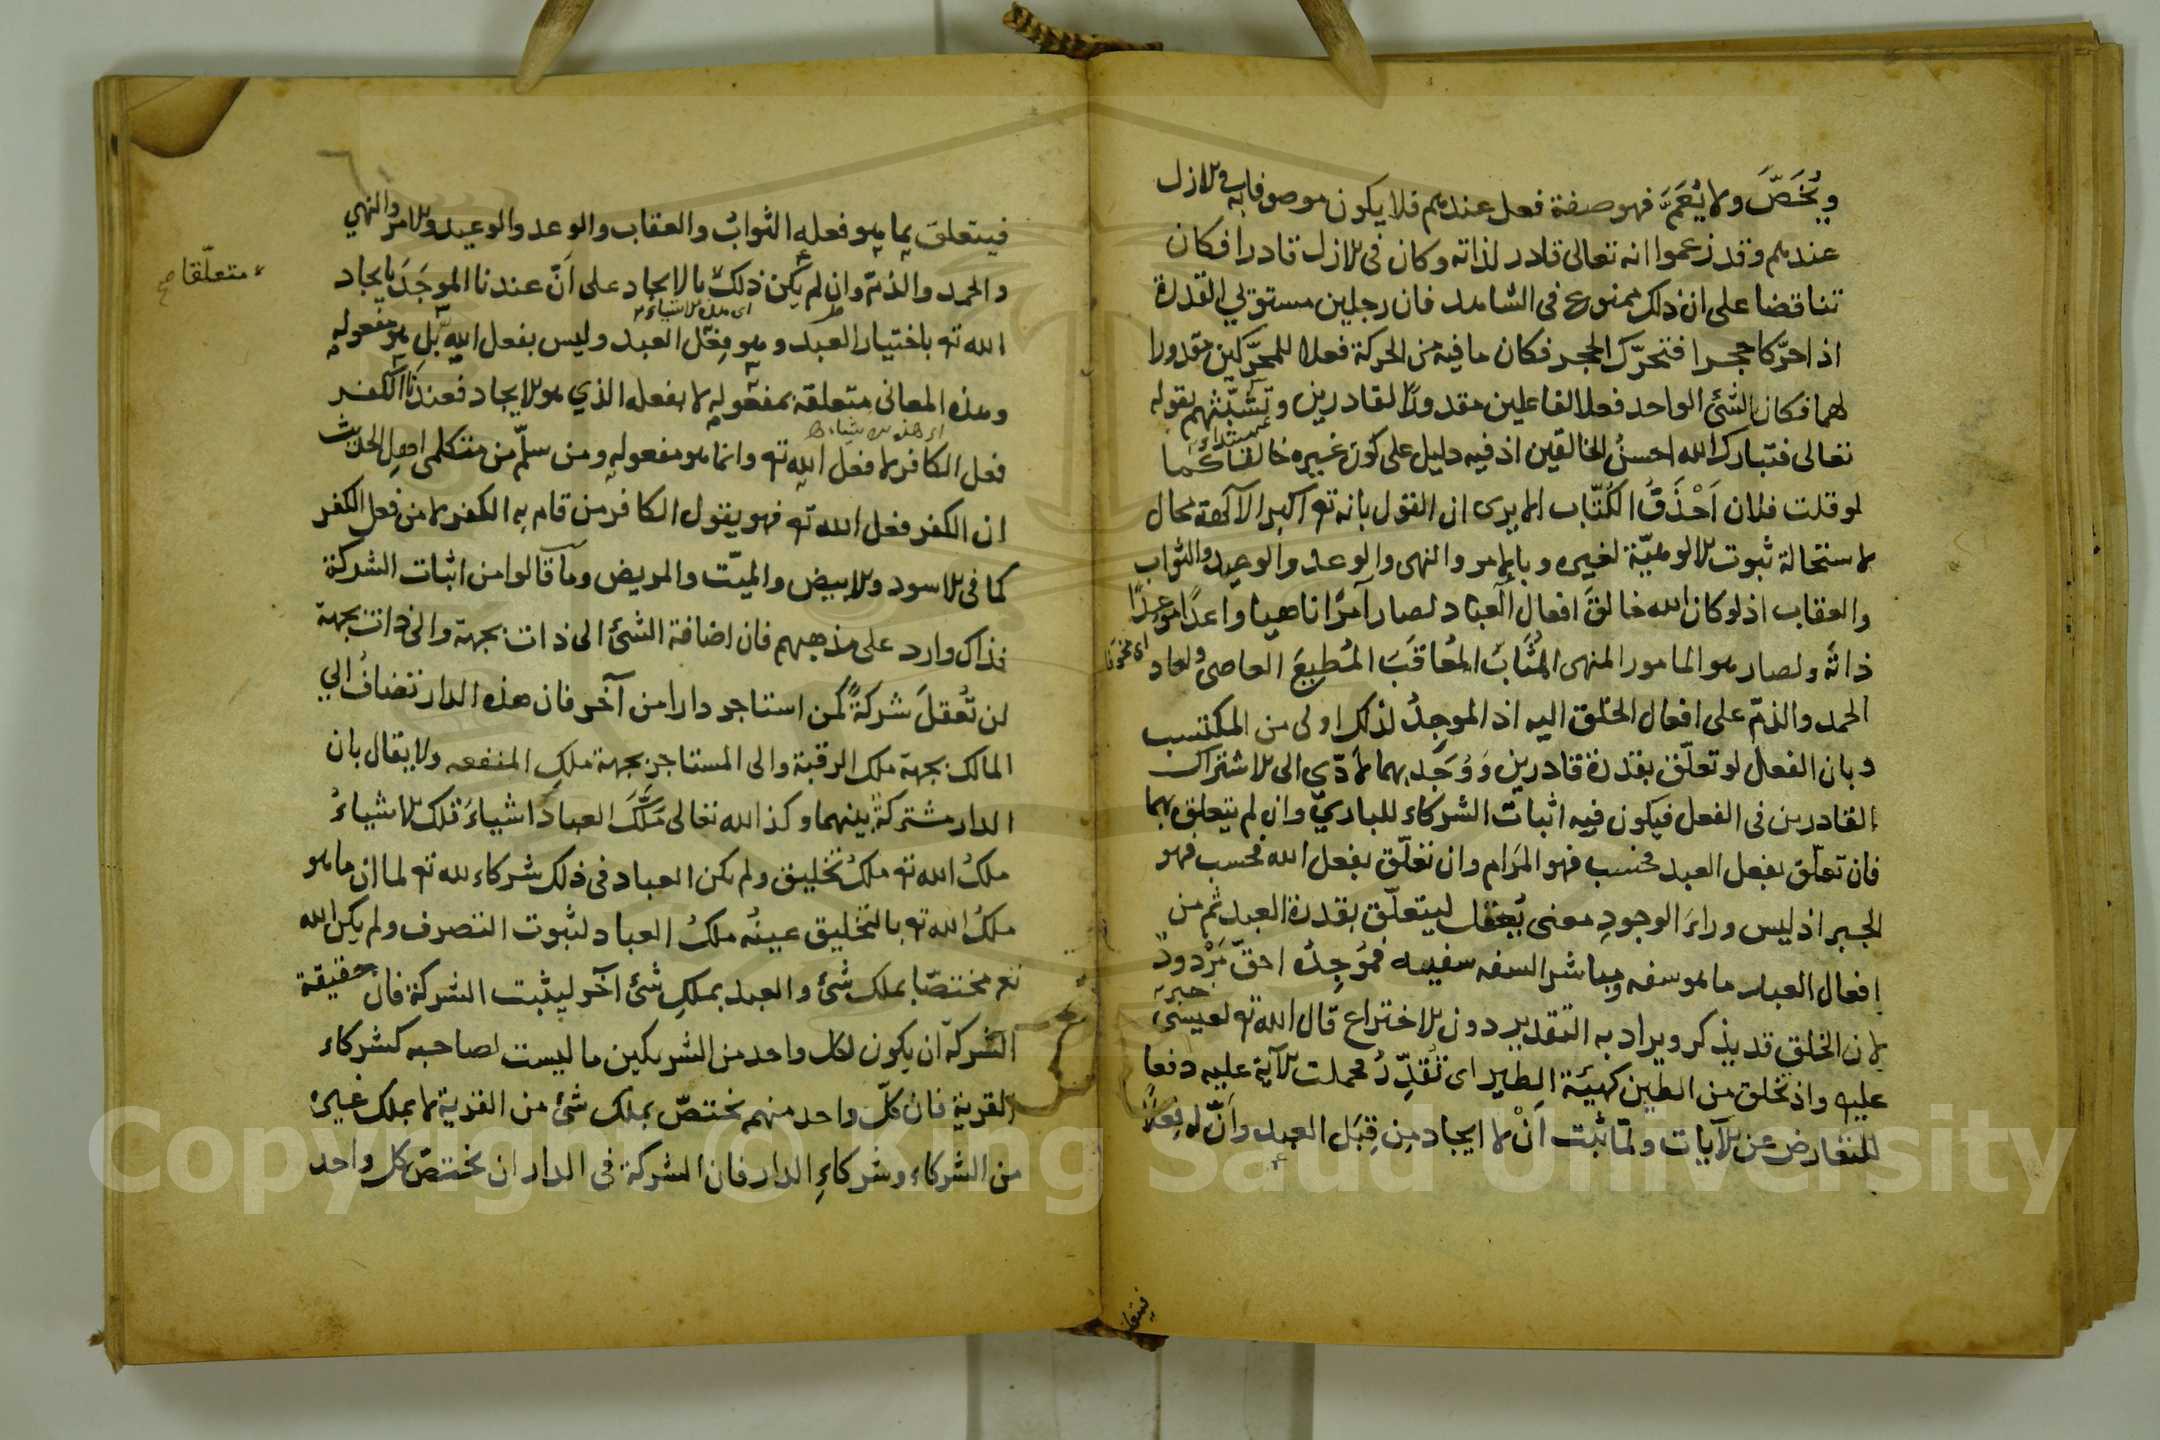 ويُخَصَّ ولا يُعَمَّ فهو صفة فعل عندهم فلا يكون موصوفا به في الازل
عندهم وقد زعموا انه تعالى قادر لذاته وكان في الازل قادرا فكان
تناقضا على ان ذلك ممنوع في الشاهد فان رجلين مستويي القدرة
اذا حرّكا حجرا فتحرّك الحجر فكان ما فيه من الحركة فعلا للمحرّكين مقدورا
لهما فكان الشئ الواحد فعلا لفاعلين مقدورًا لقادرين وتشبّثهم بقوله
تعالى فتبارك الله احسنُ الخالقين اذ فيه دليل على كون غيره خالقا كما
لو قلت فلان اَحْذَقُ الكُتّاب الا يرى ان القول بانه تع اكبر الآلهة محال
لاستحالة ثبوت الالوهيّة لغيره وبالامر والنهى والوعد والوعيد والثواب
والعقاب اذ لو كان الله خالقَ افعال العباد لصار آمرًا ناهيا واعدًا موعِدًا
اى مخوفا
ذاتَه ولصار هو المامور المنهى المُثَابَ المُعَاقَبَ المُطِيعَ العاصىَ ولعاد
الحمد والذمّ على افعال الخلق اليه اذ الموجِدُ لذلك اولى من المكتسب
وبان الفعل لو تعلّق بقدرة قادرين وَوُجَد بهما لأدّى الى الاشتراك
القادرين في الفعل فيكون فيه اثبات الشركاء للباريّ وان لم يتعلق بهما
فان تعلّق بفعل العبد فحسب فهو المَرَام وان تعلّق بفعل الله فحسب فهو
الجبر اذ ليس وراءَ الوجودِ معنى يُعقل ليتعلّق بقدرة العبد ثم من
افعال العباد ما هو سفه ومباشر السفه سفيه فمُوجِدُه احقّ مَرْدودٌ
خبر
لان الخلق قد يذكر ويراد به التقدير دون الاختراع قال الله تع لعيسى
عليه واذ تخلق من الطين كهيئة الطير اى تُقَدِّرُ فحملت الآية عليه دفعا
للتعارض عن الآيات ولمّا ثبت اَنْ لا ايجاد مِن قِبَل العبد واَنّ له فِعلًا
فيتعلق
فيتعلق بما هو فعله الثوابُ والعقاب والوعد والوعيد والامر والنهي
متعلّقا صح
والحمد والذمّ وان لم يكن ذلك بالايجاد على اَنّ عندنا الموجَدَ بايجاد
اى هذه الاشياء
الله تع باختيار العبد وهو فِعْل العبد وليس بفعل الله بل هو مفعوله
وهذه المعانى متعلقة بمفعوله لا بفعله الذي هو الايجاد فعندنا الكفر
اى هذه الاشياء
فعل الكافر لا فعل الله تع وانما هو مفعوله ومن سلّم من متكلمى اهل الحديث
ان الكفر فعل الله تع فهو يقول الكافر من قام به الكفر لا من فعل الكفر
كما في الاسود والابيض والميّت والمريض وما قالوا من اثبات الشركة
فذاك وارد على مذهبهم فان اضافة الشئ الى ذات بجهة والى ذات بجهة
لن تُعقلَ شركةً كمن استاجر دارا من آخر فان هذه الدار تضافُ الي
المالك بجهة ملك الرقبة والى المستاجر بجهة ملكِ المنفعه ولا يقال بان
الدار مشتركةٌ بينهما وكذا الله تعالى مَلَّكَ العبادَ اشياءَ فتلك الاشياءُ
ملكُ الله تع ملكُ تخليق ولم يكن العباد في ذلك شركاء لله تع لما ان ما هو
ملكُ الله تع بالتخليق عينُه ملكُ العباد لثبوت التصرف ولم يكن الله
تع مختصّا بملك شئ والعبد بملكِ شئ آخر ليثبت الشركة فان حقيقة
الشركة ان يكون لكل واحد من الشريكين ما ليست لصاحبه كشركاء
القرية فان كلّ واحد منهم مختصّ بملك شئ من القرية لا بملك غيره
من الشركاء وشركاءِ الدار فان الشركة في الدار ان يختصّ كل واحد
Copyright © King Saud University